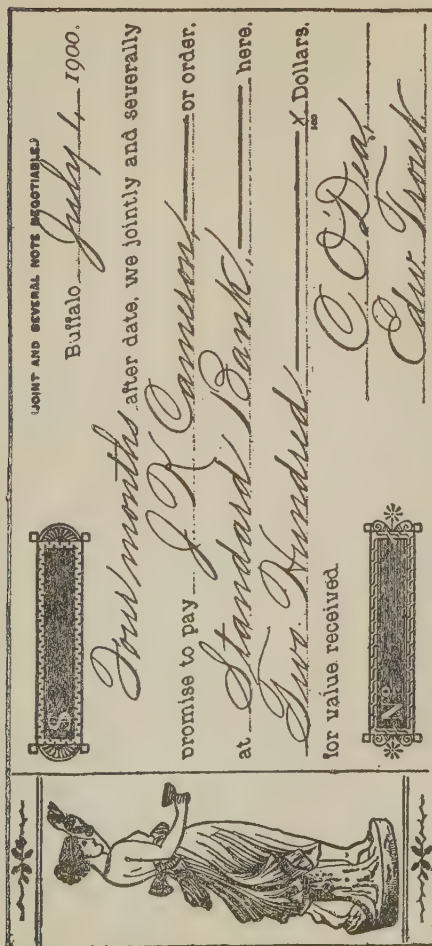 (JOINT AND SEVERAL NOTE NEGOTIABLE.)
Buffalo July 4, 1900.
Four months after date, we jointly and severally
promise to pay J K Cameron, or order.
at Standard Bank, here.
Two Hundred, x/100 Dollars.
for value received.
C O'Dea,
Edw. Trout
$
No